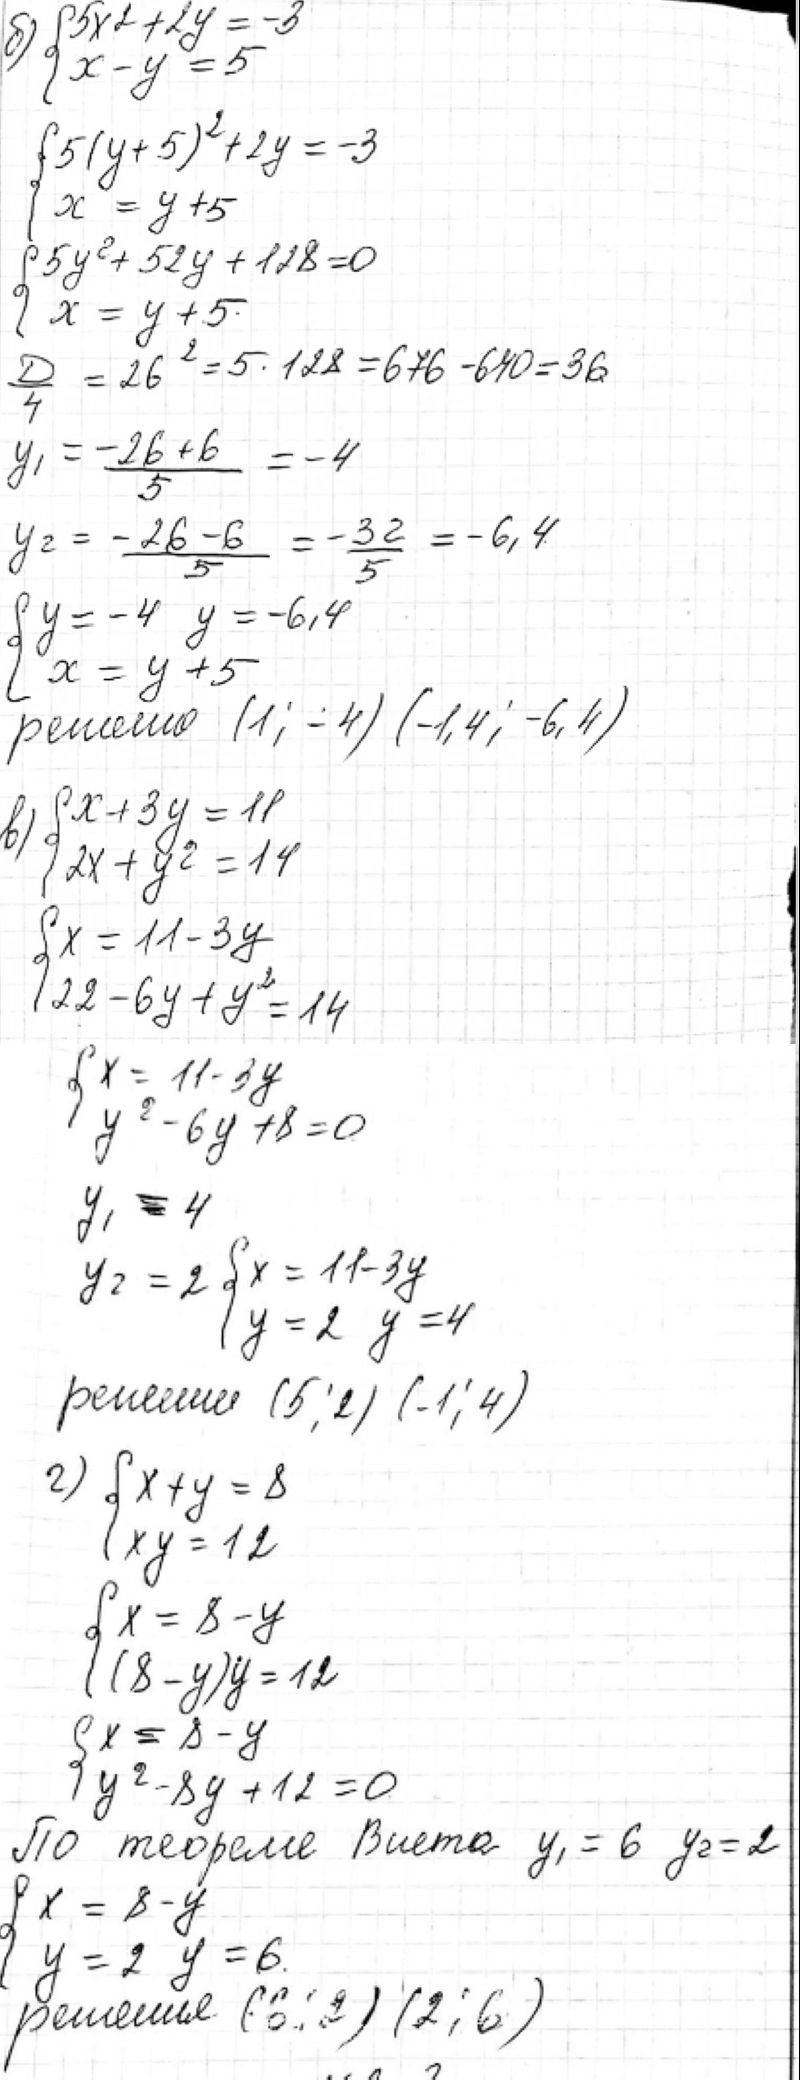 б) { 5x2 + 2y = -3
x - y = 5
{ 5(y+5)² + 2y = -3
x = y + 5
{ 5y² + 52y + 128 = 0
x = y + 5
D/4 = 26² = 5 · 128 = 676 - 640 = 36
y₁ = (-26 + 6)/5 = -4
y₂ = (-26 - 6)/5 = -32/5 = -6,4
{ y = -4 y = -6,4
x = y + 5
решено (1; -4) (-1,4; -6,4)
в) { x + 3y = 11
2x + y² = 14
{ x = 11 - 3y
22 - 6y + y² = 14
{ x = 11 - 3y
y² - 6y + 8 = 0
y₁ = 4
y₂ = 2 { x = 11 - 3y
y = 2 y = 4
решение (5; 2) (-1; 4)
г) { x + y = 8
xy = 12
{ x = 8 - y
(8 - y)y = 12
{ x = 8 - y
y² - 8y + 12 = 0
По теореме Виета y₁ = 6 y₂ = 2
{ x = 8 - y
y = 2 y = 6.
решения (6; 2) (2; 6)